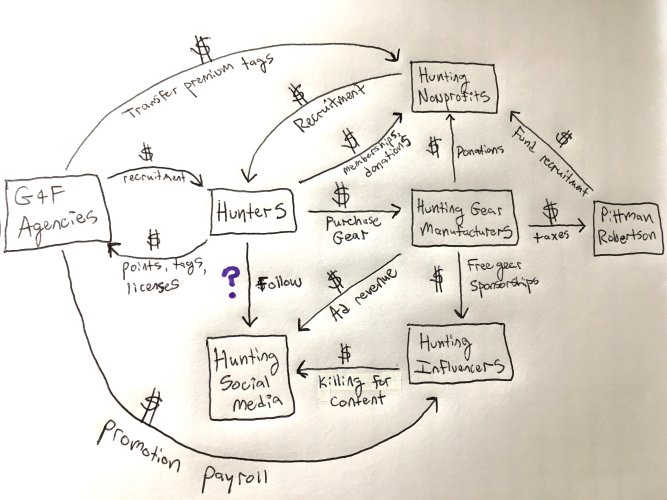 $
Transfer premium tags
Hunting
Nonprofits
$
Recruitment
$
memberships,
donations
$
Donations
$
Fund recruitment
$
recruitment
G&F
Agencies
Hunters
$
Purchase
Gear
Hunting Gear
Manufacturers
$
taxes
Pittman
Robertson
$
points, tags,
licenses
?
Follow
$
Ad revenue
$
Free gear
Sponsorships
Hunting
Social
media
$
Killing for
content
Hunting
Influencers
$
promotion payroll